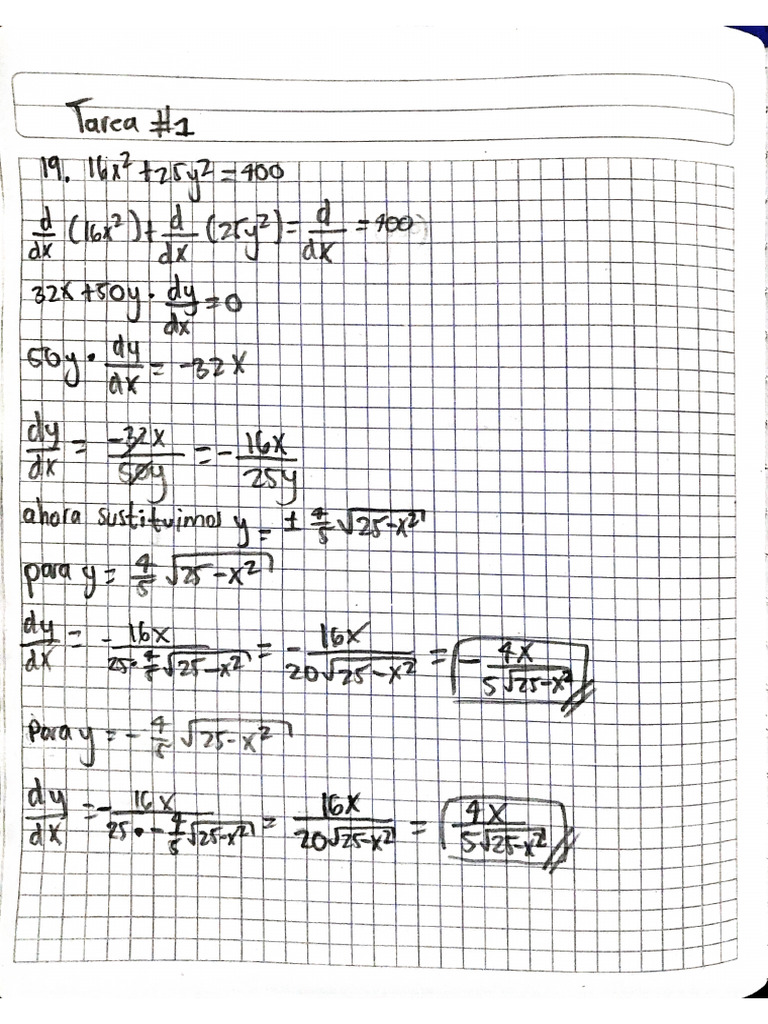 Tarea #1
19. 16x² + 25y² = 400
d/dx (16x²) + d/dx (25y²) = d/dx = 400)
32x + 50y · dy/dx = 0
50y · dy/dx = -32x
dy/dx = -32x/50y = - 16x/25y
ahora sustituimos y = ± 4/5 √25-x²
para y = 4/5 √25-x²
dy/dx = - 16x/25·4/5√25-x² = - 16x/20√25-x² = - 4x/5√25-x²
para y = - 4/5 √25-x²
dy/dx = - 16x/25·-4/5√25-x² = 16x/20√25-x² = 4x/5√25-x²